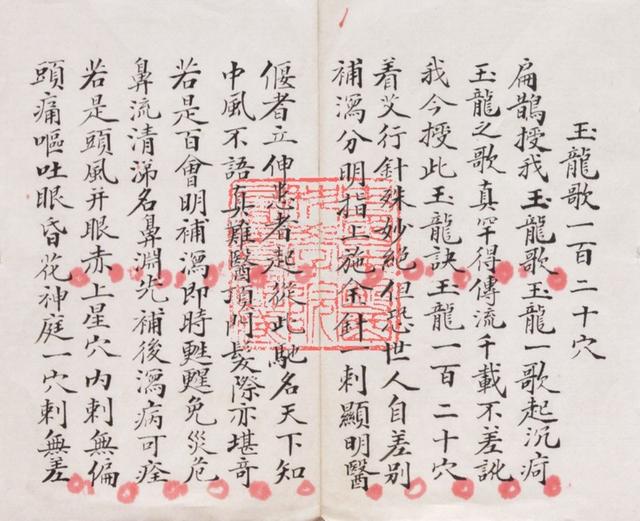 玉龍歌一百二十穴
扁鵲授我玉龍歌玉龍一歌起沉疴
玉龍之歌真罕得傳流千載不差訛
我今授此玉龍訣玉龍一百二十穴
着艾行針殊妙絕但恐世人自差別
補瀉分明指上施金針一刺顯明醫
傴者立伸患者起從此馳名天下知
中風不語真難醫頂門髮際亦堪奇
若是百會明補瀉即時甦醒免災危
鼻流清涕名鼻淵先補後瀉病可痊
若是頭風并眼赤上星穴內刺無偏
頭痛嘔吐眼昏花神庭一穴刺無差